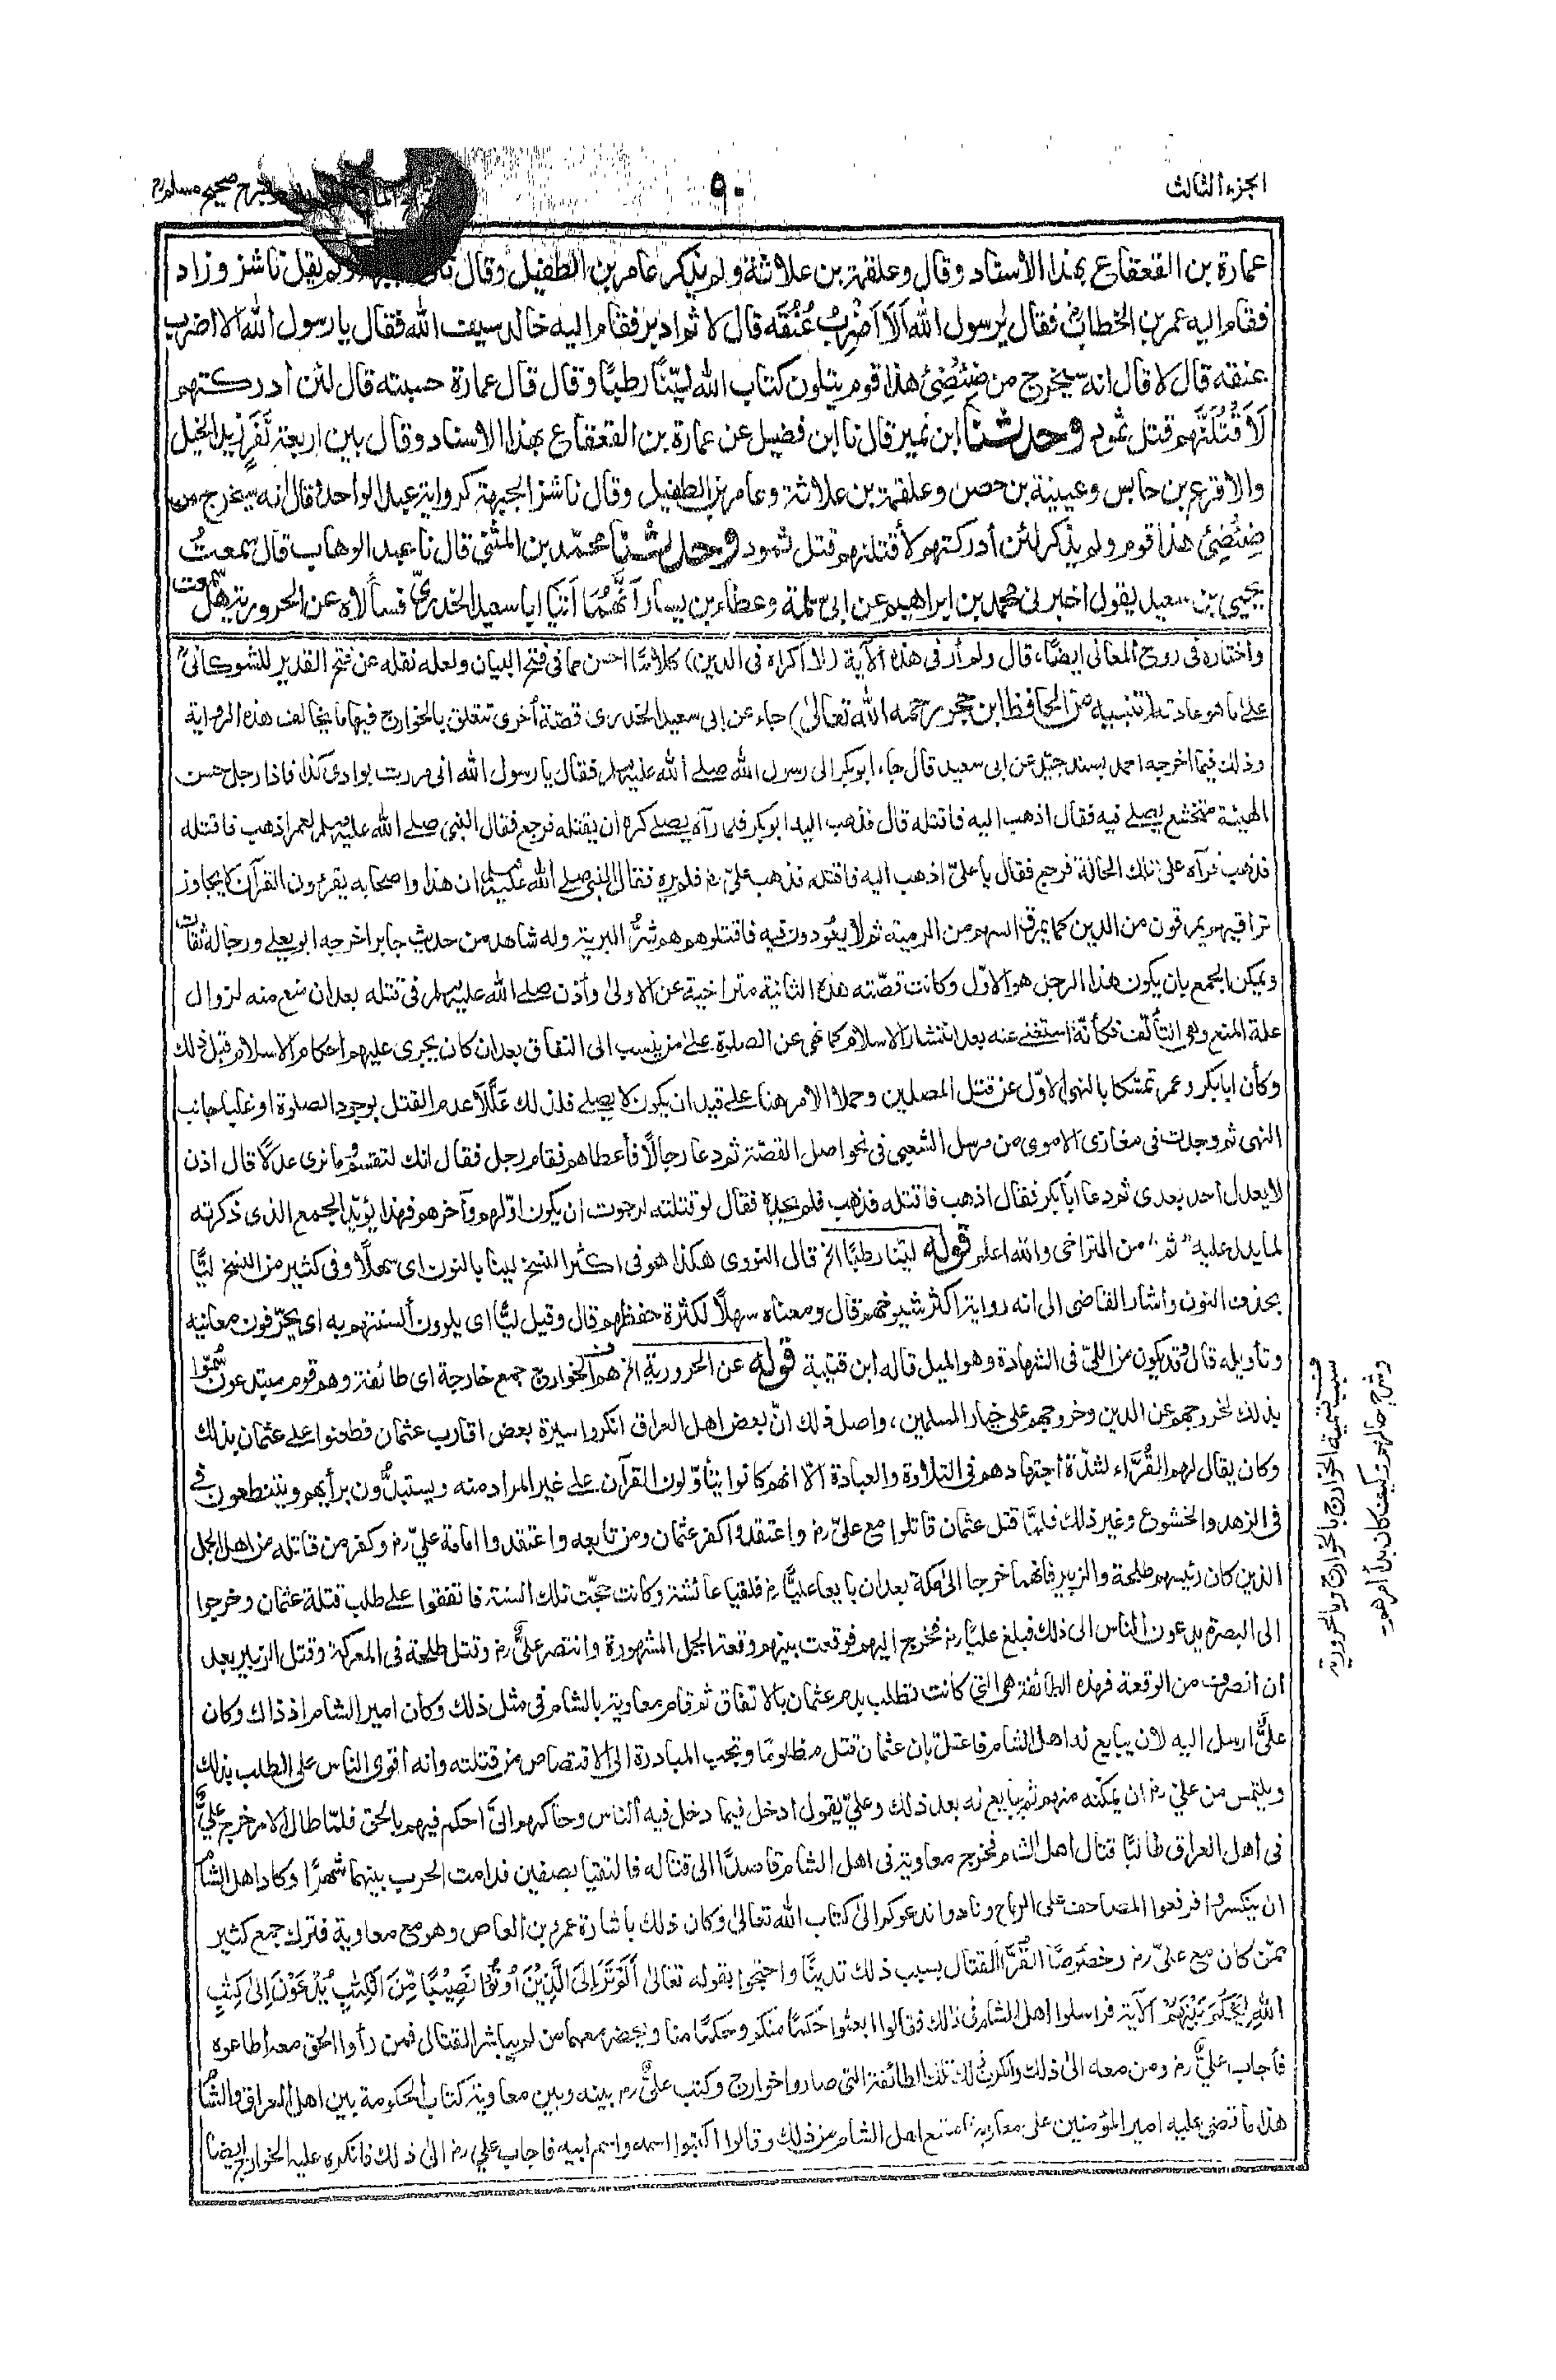 الجزء الثالث
٩٠
شرح صحيح مسلم
عمارة بن القعقاع بهذا الاسناد وقال وعلقمة بن علاثة ولم يذكر عامر بن الطفيل وقال ولم يقل ناشز وزاد
فقام اليه عمر بن الخطاب فقال يرسول الله أَلَا أَضْرِبُ عُنُقَه قال لا ثم ادبر فقام اليه خالد سيف الله فقال يا رسول الله الا اضرب
عنقه قال لا قال انه سيخرج من ضِئْضِئِ هذا قوم يتلون كتاب الله لَيِّنًا رطبًا وقال قال عمارة حسبته قال لئن أدركتهم
لَأَقْتُلَنَّهم قتل ثمود وحدثنا ابن نمير قال نا ابن فضيل عن عمارة بن القعقاع بهذا الاسناد وقال بين اربعة نَفَرٍ زيد الخيل
والاقرع بن حابس وعيينة بن حصن وعلقمة بن علاثة وعامر بن الطفيل وقال ناشز الجبهة كرواية عبد الواحد وقال انه سيخرج من
ضِئْضِئِ هذا قوم ولم يذكر لئن أدركتهم لأقتلنهم قتل ثمود وحدثنا محمّد بن المثنى قال نا عبد الوهاب قال سمعتُ
يحيى بن سعيد يقول اخبرنى محمد بن ابراهيم عن ابى سلمة وعطاء بن يسار أَنَّهُمَا أَتَيَا ابا سعيد الخدريّ فسألاه عن الحرورية هل سمعت
واختاره فى روح المعانى ايضًا، قال ولم أر فى هذه الآية (لا اكراه فى الدين) كلامًا احسن مما فى فتح البيان ولعله نقله عن فتح القدير للشوكانى
على ما هو عادته (تنبيه من الحافظ ابن حجر رحمه الله تعالىٰ) جاء عن ابى سعيد الخدرى قصّة أخرى تتعلق بالخوارج فيها ما يخالف هذه الرواية
وذلك فيما اخرجه احمد بسند جيّد عن ابى سعيد قال جاء ابو بكر الى رسول الله صلى الله عليه وسلم فقال يا رسول الله انى مررت بوادى كذا فاذا رجل حسن
الهيئة متخشع يصلى فيه فقال اذهب اليه فاقتله قال فذهب اليه ابو بكر فلما رآه يصلى كره ان يقتله فرجع فقال النبى صلى الله عليه وسلم لعمر اذهب فاقتله
فذهب فرآه على تلك الحالة فرجع فقال يا علىّ اذهب اليه فاقتله فذهب علىّ رض فلم يره فقال النبى صلى الله عليه وسلم ان هذا واصحابه يقرءون القرآن لا يجاوز
تراقيهم يمرقون من الدين كما يمرق السهم من الرمية ثم لا يعودون فيه فاقتلوهم هم شرُّ البرية وله شاهد من حديث جابر اخرجه ابو يعلى ورجاله ثقات
ويمكن الجمع بان يكون هذا الرجل هو الاوّل وكانت قصّته هذه الثانية متراخية عن الاولىٰ وأذن صلى الله عليه وسلم فى قتله بعد ان منع منه لزوال
علة المنع وهى التألّف فكأنّه استغنى عنه بعد انتشار الاسلام كما نهى عن الصلوة على من ينسب الى النفاق بعد ان كان يجرى عليهم احكام الاسلام قبل ذلك
وكأن ابا بكر وعمر تمسّكا بالنهى الاوّل عن قتل المصلين وحملا الامر هنا على قيد ان يكون لا يصلى فلذلك عَلَّلَا عدم القتل بوجود الصلوة او غلبا جانب
النهى ثم وجدت فى مغازى الاموى من مرسل الشعبى فى نحو اصل القصّة ثم دعا رجالًا فأعطاهم فقام رجل فقال انك لتقسم وما نرى عدلًا قال اذن
لا يعدل احد بعدى ثم دعا أبا بكر فقال اذهب فاقتله فذهب فلم يجده فقال لو قتلته لرجوت ان يكون اوّلهم وآخرهم فهذا يؤيّد الجمع الذى ذكرته
لما يدل عليه "ثم" من التراخى والله اعلم قوله لينا رطبًا الخ قال النووى هكذا هو فى اكثر النسخ لينا بالنون اى سهلًا وفى كثير من النسخ ليًّا
بحذف النون واشار القاضى الى انه رواية اكثر شيوخهم قال ومعناه سهلًا لكثرة حفظهم قال وقيل ليًّا اى يلوون ألسنتهم به اى يحرّفون معانيه
وتأويله قال وقد يكون من اللىّ فى الشهادة وهو الميل قاله ابن قتيبة قوله عن الحرورية الخ هم الخوارج جمع خارجة اى طائفة وهم قوم مبتدعون سُمّوا
بذلك لخروجهم عن الدين وخروجهم على خيار المسلمين، واصل ذلك انّ بعض اهل العراق انكروا سيرة بعض اقارب عثمان فطعنوا على عثمان بذلك
وكان يقال لهم القُرَّاء لشدّة اجتهادهم فى التلاوة والعبادة الّا انهم كانوا يتأوّلون القرآن على غير المراد منه ويستبدُّون برأيهم ويتنطعون
فى الزهد والخشوع وغير ذلك فلمّا قتل عثمان قاتلوا مع علىّ رض واعتقدوا كفر عثمان ومن تابعه واعتقدوا امامة علىّ رض وكفر من قاتله من اهل الجمل
الذين كان رئيسهم طلحة والزبير فانهما خرجا الى مكة بعد ان بايعا عليًّا رض فلقيا عائشة وكانت حجّت تلك السنة فاتفقوا على طلب قتلة عثمان وخرجوا
الى البصرة يدعون الناس الى ذلك فبلغ عليًا رض فخرج اليهم فوقعت بينهم وقعة الجمل المشهورة وانتصر علىٌّ رض وقتل طلحة فى المعركة وقتل الزبير بعد
ان انصرف من الوقعة فهذه الطائفة هى التى كانت تطلب بدم عثمان بالاتفاق ثم قام معاوية بالشام فى مثل ذلك وكان امير الشام اذ ذاك وكان
علىٌّ ارسل اليه لان يبايع له اهل الشام فاعتلّ بان عثمان قتل مظلومًا وتجب المبادرة الى الاقتصاص من قتلته وانه اقوى الناس على الطلب بذلك
ويلتمس من علىّ رض ان يمكّنه منهم ثم يبايع له بعد ذلك وعلىّ يقول ادخل فيما دخل فيه الناس وحاكمهم الىّ احكم فيهم بالحق فلمّا طال الامر خرج علىٌّ
فى اهل العراق طالبًا قتال اهل الشام فخرج معاوية فى اهل الشام قاصدًا الى قتاله فالتقيا بصفين فدامت الحرب بينهما شهرًا وكاد اهل الشام
ان ينكسروا فرفعوا المصاحف على الرماح ونادوا ندعوكم الىٰ كتاب الله تعالىٰ وكان ذلك باشارة عمرو بن العاص وهو مع معاوية فترك جمع كثير
ممّن كان مع علىّ رض وخصوصًا القُرّاء القتال بسبب ذلك تدينًا واحتجوا بقوله تعالىٰ أَلَمْ تَرَ إِلَى الَّذِيْنَ أُوْتُوْا نَصِيْبًا مِّنَ الْكِتٰبِ يُدْعَوْنَ إِلىٰ كِتٰبِ
اللهِ لِيَحْكُمَ بَيْنَهُمْ الآية فراسلوا اهل الشام فى ذلك فقالوا ابعثوا حَكَمًا منكم وحكمًا منا ويحضر معهما من لم يباشر القتال فمن رأوا الحق معه اطاعوه
فأجاب علىٌّ رض ومن معه الىٰ ذلك وأنكرت ذلك تلك الطائفة التى صاروا خوارج وكتب علىٌّ رض بينه وبين معاوية كتاب الحكومة بين اهل العراق والشام
هذا ما قضى عليه امير المؤمنين على معاوية فامتنع اهل الشام من ذلك وقالوا اكتبوا اسمه واسم ابيه فاجاب على رض الى ذلك فانكره عليه الخوارج ايضا
سبب تسمية الخوارج بالخوارج وبالحرورية
وشرح حالهم وكيف كان بدأ امرهم